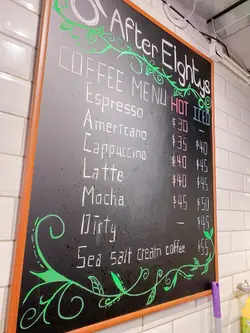 After Eightys
COFFEE MENU HOT ICED
Espresso $30 —
Americano $35 $40
Cappuccino $40 $45
Latte $40 $45
Mocha $45 $50
Dirty — $45
Sea salt cream coffee $55